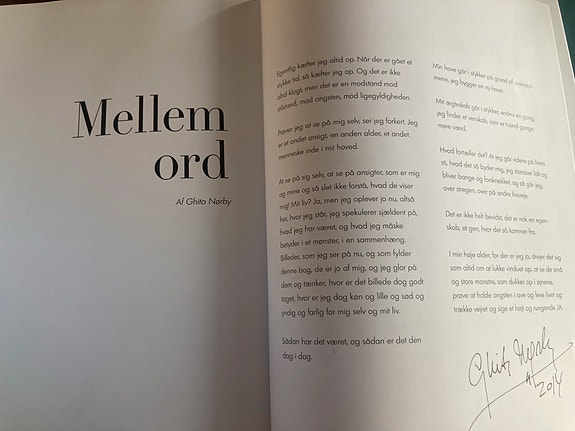 Mellem
ord
Af Ghita Nørby
Egentlig kæfter jeg altid op. Når der er gået et
stykke tid, så kæfter jeg op. Og det er ikke
altid klogt, men det er en modstand mod
stilstand, mod angsten, mod ligegyldigheden.
Prøver jeg at se på mig selv, ser jeg forkert. Jeg
er et andet ansigt, en anden alder, et andet
menneske inde i mit hoved.
At se på sig selv, at se på ansigter, som er mig
og mine og så slet ikke forstå, hvad de viser
mig! Mit liv? Ja, men jeg oplever jo nu, altså
her, hvor jeg står, jeg spekulerer sjældent på,
hvad jeg har været, og hvad jeg måske
betyder i et mønster, i en sammenhæng.
Billeder, som jeg ser på nu, og som fylder
denne bog, de er jo af mig, og jeg glor på
dem og tænker, hvor er det billede dog godt
taget, hvor er jeg dog køn og lille og sød og
yndig og farlig for mig selv og mit liv.
Sådan har det været, og sådan er det den
dag i dag.
Min have går i stykker på grund af
mene, jeg bygger en ny have.
Mit ægteskab går i stykker, endnu en gang,
jeg finder et venskab, som er tusind gange
mere værd.
Hvad fortæller det? At jeg går videre på livets
sti, hvad der så byder mig, jeg standser lidt og
bliver bange og forskrækket, og så går jeg,
over stregen, over på andre livsveje.
Det er ikke helt bevidst, det er nok en egen-
skab, et gen, hvor det så kommer fra.
I min høje alder, for der er jeg jo, drejer det sig
som altid om at lukke vinduet op, at se de små
og store mønstre, som dukker op i øjnene,
prøve at holde angsten i ave og leve livet og
trække vejret og sige et højt og rungende JA.
Ghita Nørby
2014